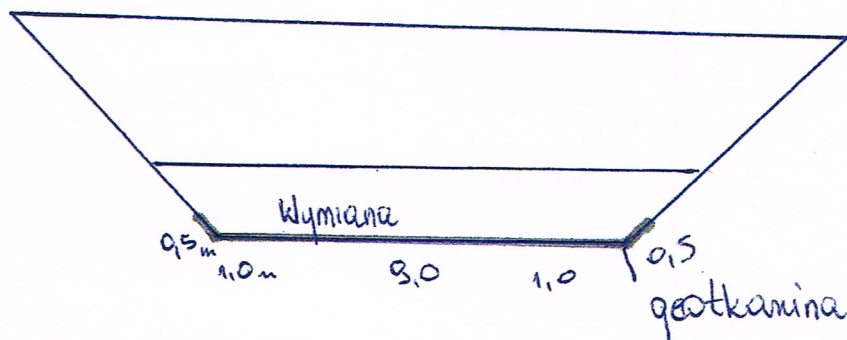 Wymiana
0,5m
0,5
1,0m 9,0 1,0
geotkanina